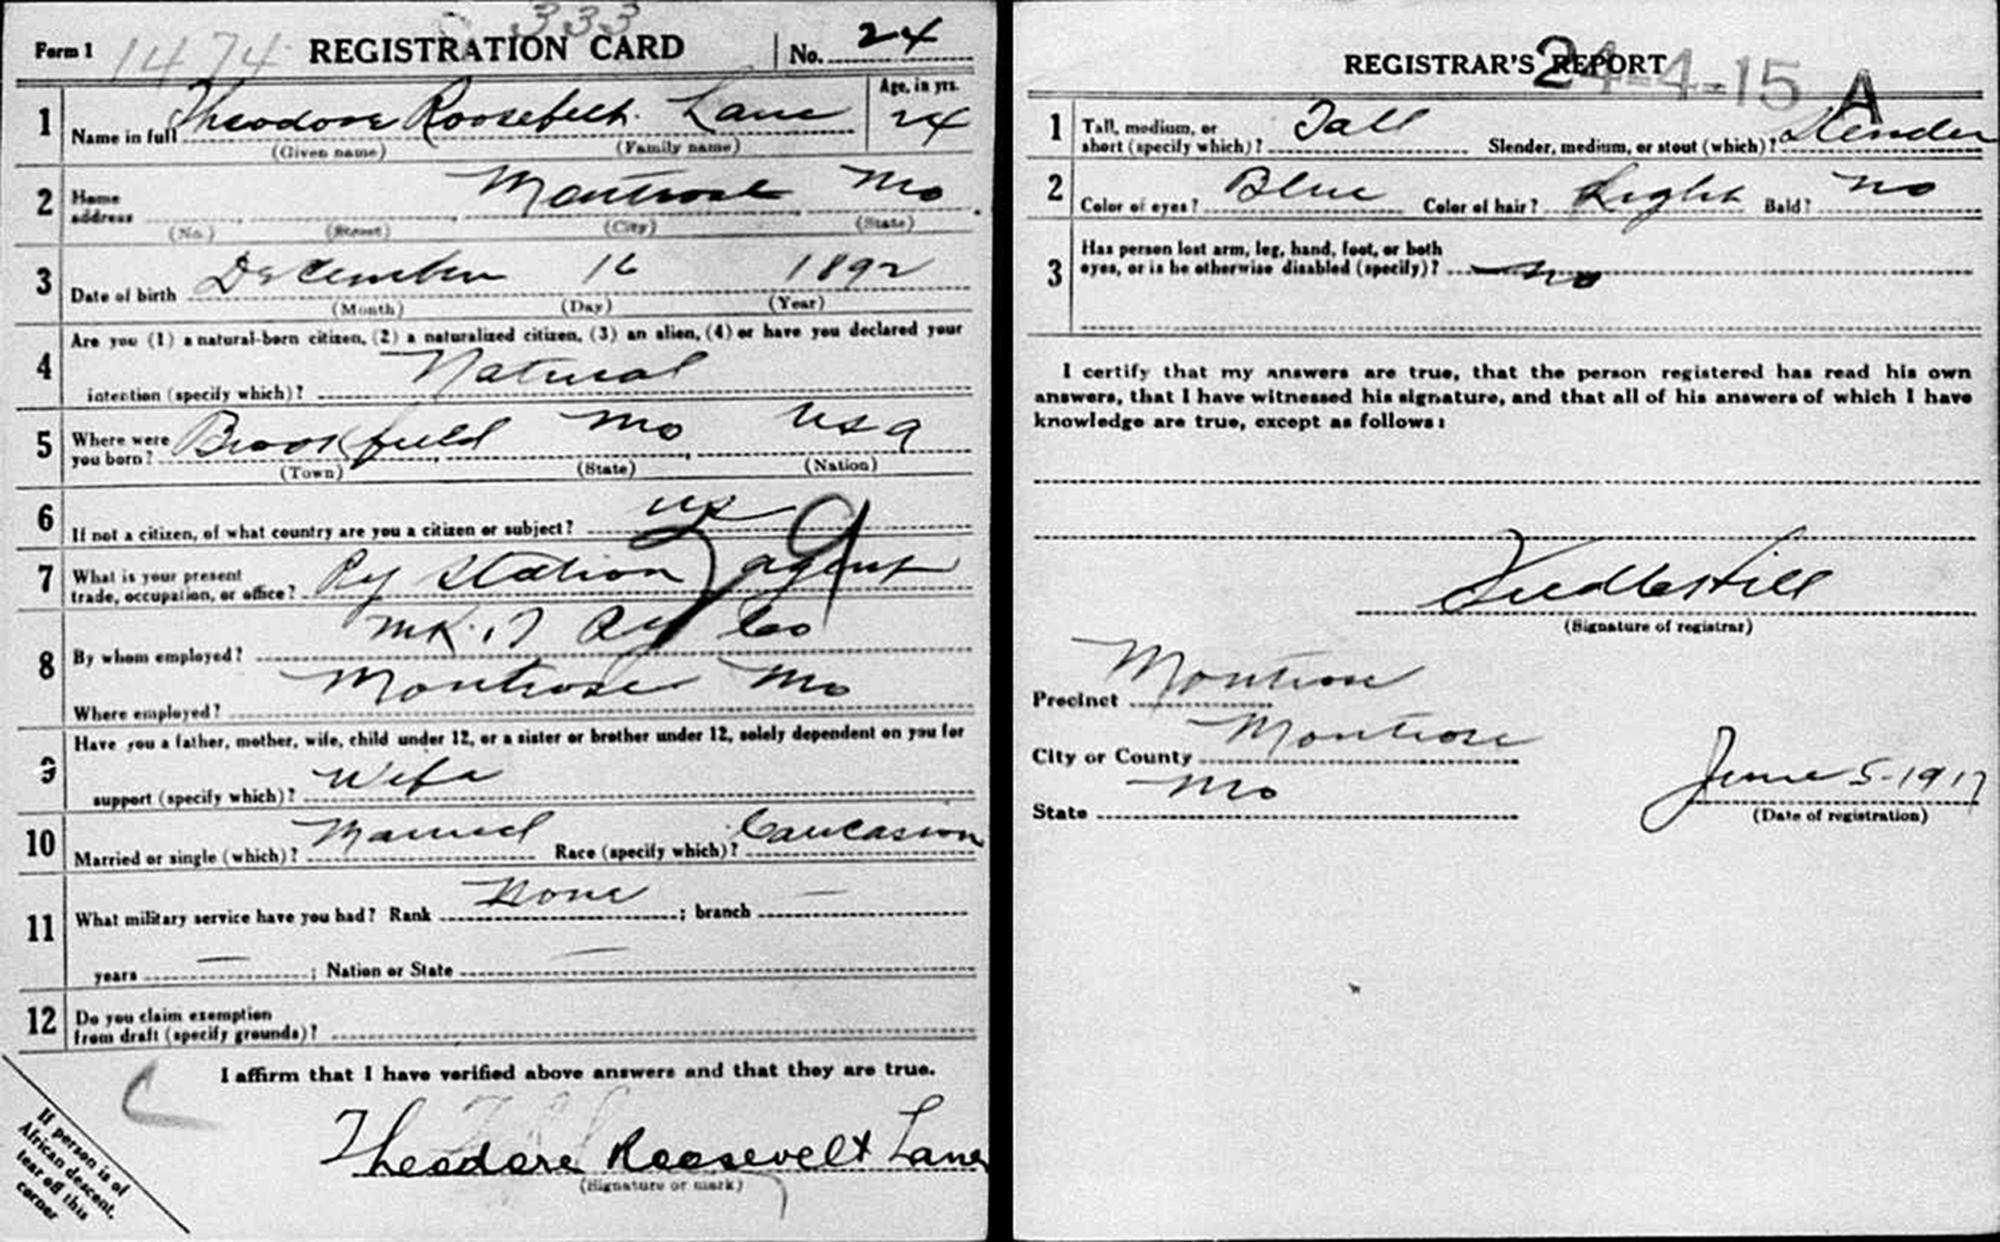 333
Form 1 1474 REGISTRATION CARD No. 24
1 Name in full Theodore Roosebelt Lane Age, in yrs. 24
(Given name) (Family name)
2 Home address Montrose Mo
(No.) (Street) (City) (State)
3 Date of birth December 16 1892
(Month) (Day) (Year)
4 Are you (1) a natural-born citizen, (2) a naturalized citizen, (3) an alien, (4) or have you declared your
intention (specify which)? Natural
5 Where were you born? Brookfield Mo USA
(Town) (State) (Nation)
6 If not a citizen, of what country are you a citizen or subject? us
7 What is your present trade, occupation, or office? Ry Station agent
8 By whom employed? MK.T Ry Co
Where employed? Montrose Mo
9 Have you a father, mother, wife, child under 12, or a sister or brother under 12, solely dependent on you for
support (specify which)? Wife
10 Married or single (which)? Married Race (specify which)? Caucasion
11 What military service have you had? Rank None ; branch —
years — ; Nation or State —
12 Do you claim exemption
from draft (specify grounds)?
I affirm that I have verified above answers and that they are true.
Theodore Roosevelt Lane
(Signature or mark)
If person is of
African descent,
tear off this
corner
REGISTRAR'S REPORT
24-4-15 A
1 Tall, medium, or short (specify which)? Tall Slender, medium, or stout (which)? Slender
2 Color of eyes? Blue Color of hair? Light Bald? No
3 Has person lost arm, leg, hand, foot, or both
eyes, or is he otherwise disabled (specify)? No
I certify that my answers are true, that the person registered has read his own
answers, that I have witnessed his signature, and that all of his answers of which I have
knowledge are true, except as follows:
(Signature of registrar)
Precinct Montrose
City or County Montrose
State Mo
June 5-1917
(Date of registration)